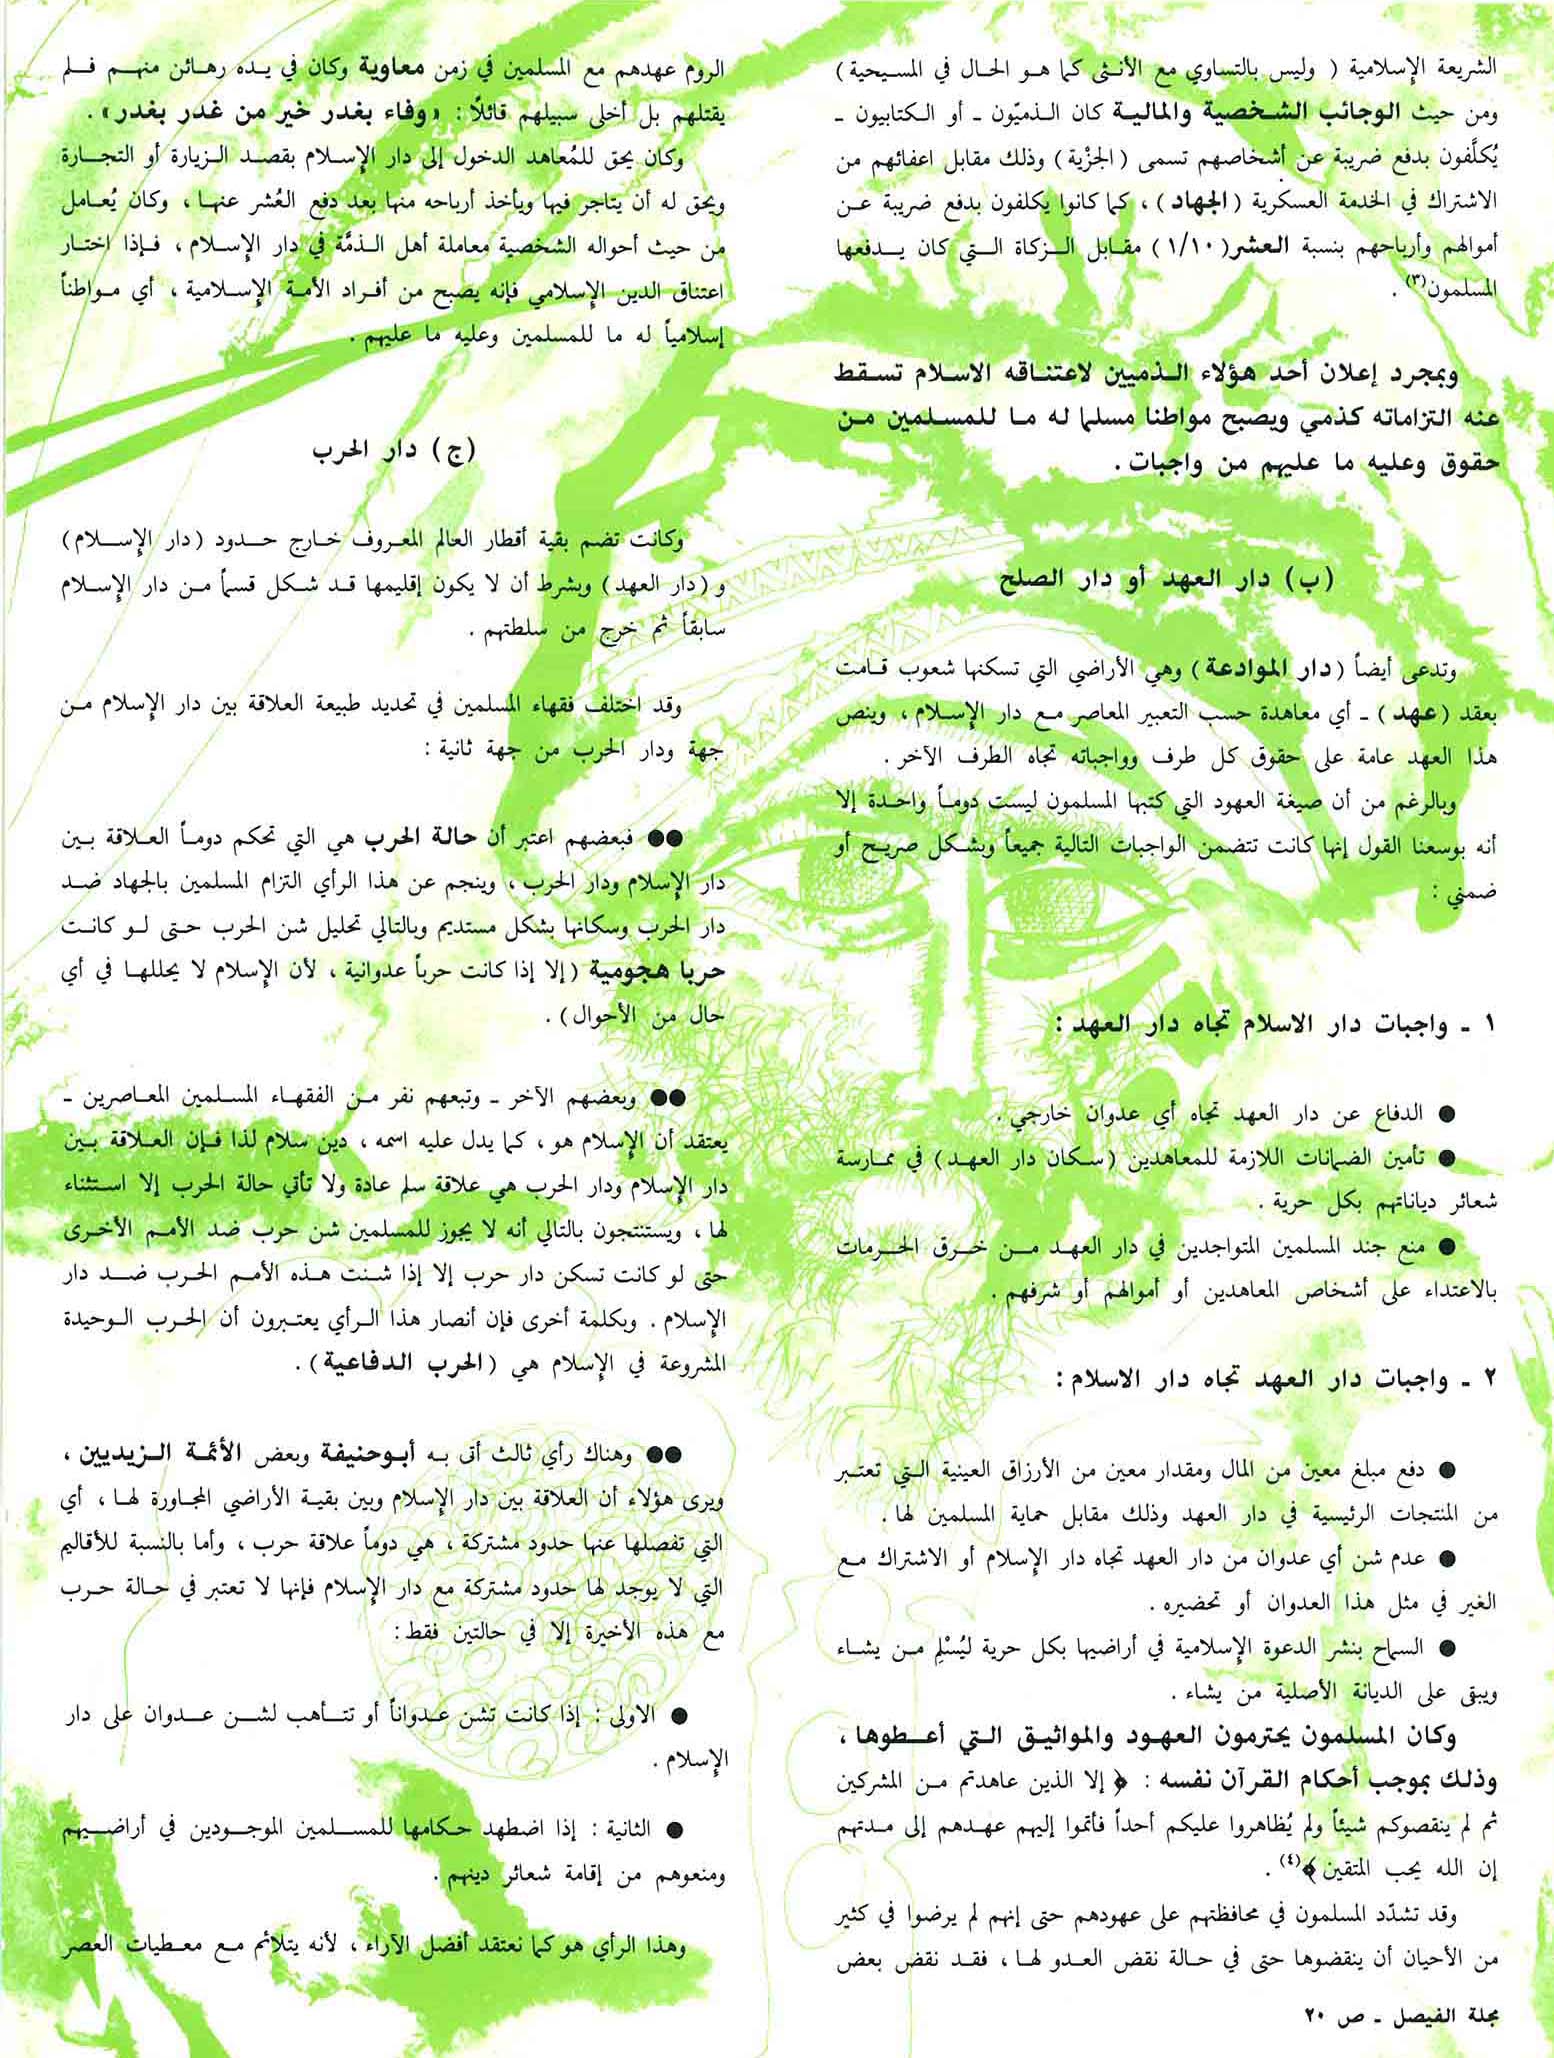 الشريعة الإسلامية ( وليس بالتساوي مع الأنثى كما هو الحال في المسيحية )
ومن حيث الوجائب الشخصية والمالية كان الذميّون ـ أو الكتابيون ـ
يُكلَّفون بدفع ضريبة عن أشخاصهم تسمى ( الجزْية ) وذلك مقابل اعفائهم من
الاشتراك في الخدمة العسكرية ( الجهاد ) ، كما كانوا يكلفون بدفع ضريبة عن
أموالهم وأرباحهم بنسبة العشر ( ١/١٠ ) مقابل الزكاة التي كان يدفعها
المسلمون(٣) .
وبمجرد إعلان أحد هؤلاء الذميين لاعتناقه الاسلام تسقط
عنه التزاماته كذمي ويصبح مواطنا مسلما له ما للمسلمين من
حقوق وعليه ما عليهم من واجبات .
( ب ) دار العهد أو دار الصلح
وتدعى أيضاً ( دار الموادعة ) وهي الأراضي التي تسكنها شعوب قامت
بعقد ( عهد ) ـ أي معاهدة حسب التعبير المعاصر مع دار الإسلام ، وينص
هذا العهد عامة على حقوق كل طرف وواجباته تجاه الطرف الآخر .
وبالرغم من أن صيغة العهود التي كتبها المسلمون ليست دوماً واحدة إلا
أنه بوسعنا القول إنها كانت تتضمن الواجبات التالية جميعاً وبشكل صريح أو
ضمني :
١ ـ واجبات دار الاسلام تجاه دار العهد :
● الدفاع عن دار العهد تجاه أي عدوان خارجي .
● تأمين الضمانات اللازمة للمعاهدين ( سكان دار العهد ) في ممارسة
شعائر دياناتهم بكل حرية .
● منع جند المسلمين المتواجدين في دار العهد من خرق الحرمات
بالاعتداء على أشخاص المعاهدين أو أموالهم أو شرفهم .
٢ ـ واجبات دار العهد تجاه دار الاسلام :
● دفع مبلغ معين من المال ومقدار معين من الأرزاق العينية التي تعتبر
من المنتجات الرئيسية في دار العهد وذلك مقابل حماية المسلمين لها .
● عدم شن أي عدوان من دار العهد تجاه دار الإسلام أو الاشتراك مع
الغير في مثل هذا العدوان أو تحضيره .
● السماح بنشر الدعوة الإسلامية في أراضيها بكل حرية ليُسْلِم من يشاء
ويبقى على الديانة الأصلية من يشاء .
وكان المسلمون يحترمون العهود والمواثيق التي أعطوها ،
وذلك بموجب أحكام القرآن نفسه : ﴿ إلا الذين عاهدتم من المشركين
ثم لم ينقصوكم شيئاً ولم يُظاهروا عليكم أحداً فأتموا إليهم عهدهم إلى مدتهم
إن الله يحب المتقين ﴾(٤) .
وقد تشدّد المسلمون في محافظتهم على عهودهم حتى إنهم لم يرضوا في كثير
من الأحيان أن ينقضوها حتى في حالة نقض العدو لها ، فقد نقض بعض
الروم عهدهم مع المسلمين في زمن معاوية وكان في يده رهائن منهم فلم
يقتلهم بل أخلى سبيلهم قائلاً : «وفاء بغدر خير من غدر بغدر» .
وكان يحق للمُعاهد الدخول إلى دار الإسلام بقصد الزيارة أو التجارة
ويحق له أن يتاجر فيها ويأخذ أرباحه منها بعد دفع العُشر عنها ، وكان يُعامل
من حيث أحواله الشخصية معاملة أهل الذمَّة في دار الإسلام ، فإذا اختار
اعتناق الدين الإسلامي فإنه يصبح من أفراد الأمة الإسلامية ، أي مواطناً
إسلامياً له ما للمسلمين وعليه ما عليهم .
( ج ) دار الحرب
وكانت تضم بقية أقطار العالم المعروف خارج حدود ( دار الإسلام )
و ( دار العهد ) وبشرط أن لا يكون إقليمها قد شكل قسماً من دار الإسلام
سابقاً ثم خرج من سلطتهم .
وقد اختلف فقهاء المسلمين في تحديد طبيعة العلاقة بين دار الإسلام من
جهة ودار الحرب من جهة ثانية :
●● فبعضهم اعتبر أن حالة الحرب هي التي تحكم دوماً العلاقة بين
دار الإسلام ودار الحرب ، وينجم عن هذا الرأي التزام المسلمين بالجهاد ضد
دار الحرب وسكانها بشكل مستديم وبالتالي تحليل شن الحرب حتى لو كانت
حربا هجومية ( إلا إذا كانت حرباً عدوانية ، لأن الإسلام لا يحللها في أي
حال من الأحوال ) .
●● وبعضهم الآخر ـ وتبعهم نفر من الفقهاء المسلمين المعاصرين ـ
يعتقد أن الإسلام هو ، كما يدل عليه اسمه ، دين سلام لذا فإن العلاقة بين
دار الإسلام ودار الحرب هي علاقة سلم عادة ولا تأتي حالة الحرب إلا استثناء
لها ، ويستنتجون بالتالي أنه لا يجوز للمسلمين شن حرب ضد الأمم الأخرى
حتى لو كانت تسكن دار حرب إلا إذا شنت هذه الأمم الحرب ضد دار
الإسلام . وبكلمة أخرى فإن أنصار هذا الرأي يعتبرون أن الحرب الوحيدة
المشروعة في الإسلام هي ( الحرب الدفاعية ) .
●● وهناك رأي ثالث أتى به أبوحنيفة وبعض الأئمة الزيديين ،
ويرى هؤلاء أن العلاقة بين دار الإسلام وبين بقية الأراضي المجاورة لها ، أي
التي تفصلها عنها حدود مشتركة ، هي دوماً علاقة حرب ، وأما بالنسبة للأقاليم
التي لا يوجد لها حدود مشتركة مع دار الإسلام فإنها لا تعتبر في حالة حرب
مع هذه الأخيرة إلا في حالتين فقط :
● الاولى : إذا كانت تشن عدواناً أو تتأهب لشن عدوان على دار
الإسلام .
● الثانية : إذا اضطهد حكامها للمسلمين الموجودين في أراضيهم
ومنعوهم من إقامة شعائر دينهم .
وهذا الرأي هو كما نعتقد أفضل الآراء ، لأنه يتلائم مع معطيات العصر
مجلة الفيصل ـ ص ٢٠